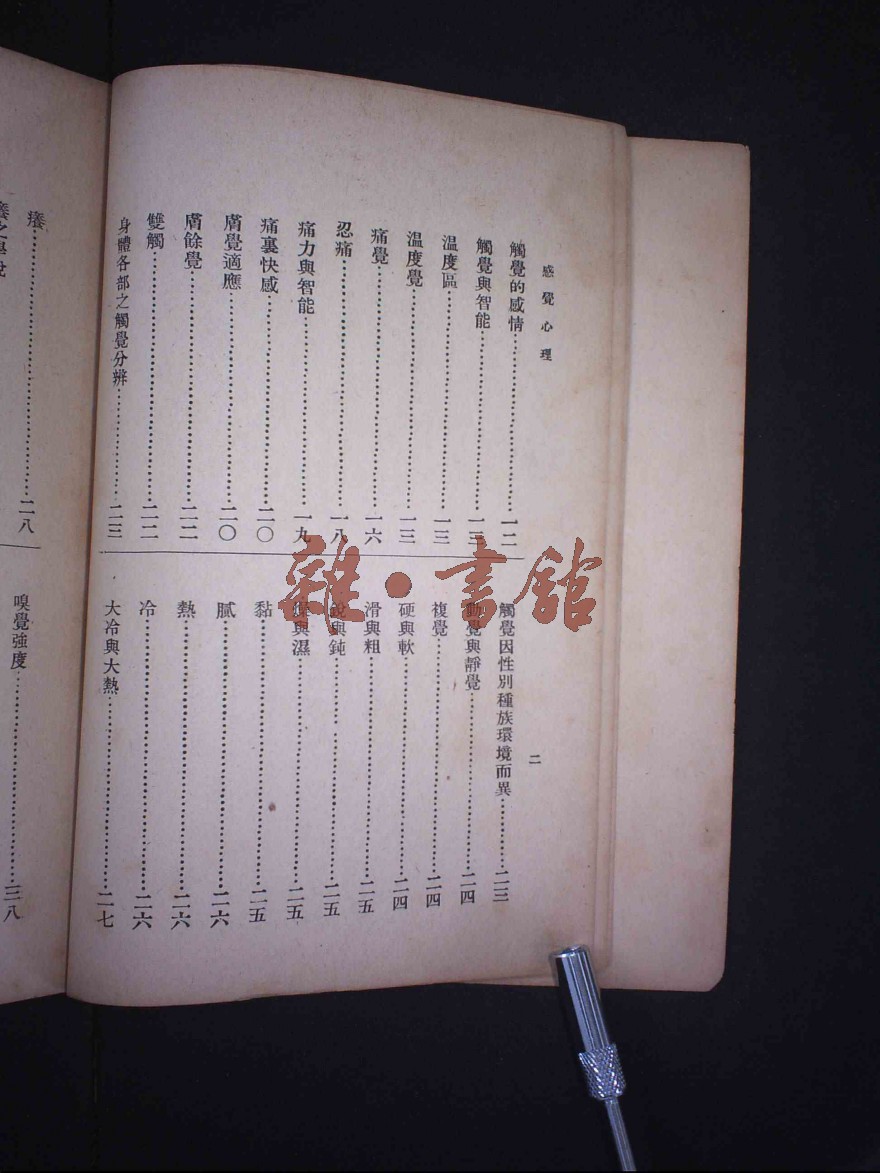 感覺心理
觸覺的感情……一二
觸覺與智能……一三
温度區……一三
温度覺……一三
痛覺……一六
忍痛……一八
痛力與智能……一九
痛裏快感……二〇
膚覺適應……二〇
膚餘覺……二二
雙觸……二二
身體各部之觸覺分辨……二三
二
觸覺因性別種族環境而異……二三
動覺與靜覺……二四
複覺……二四
硬與軟……二四
滑與粗……二五
銳與鈍……二五
燥與濕……二五
黏……二五
膩……二六
熱……二六
冷……二六
大冷與大熱……二七
癢……二八
嗅覺強度……三八
雜·書館